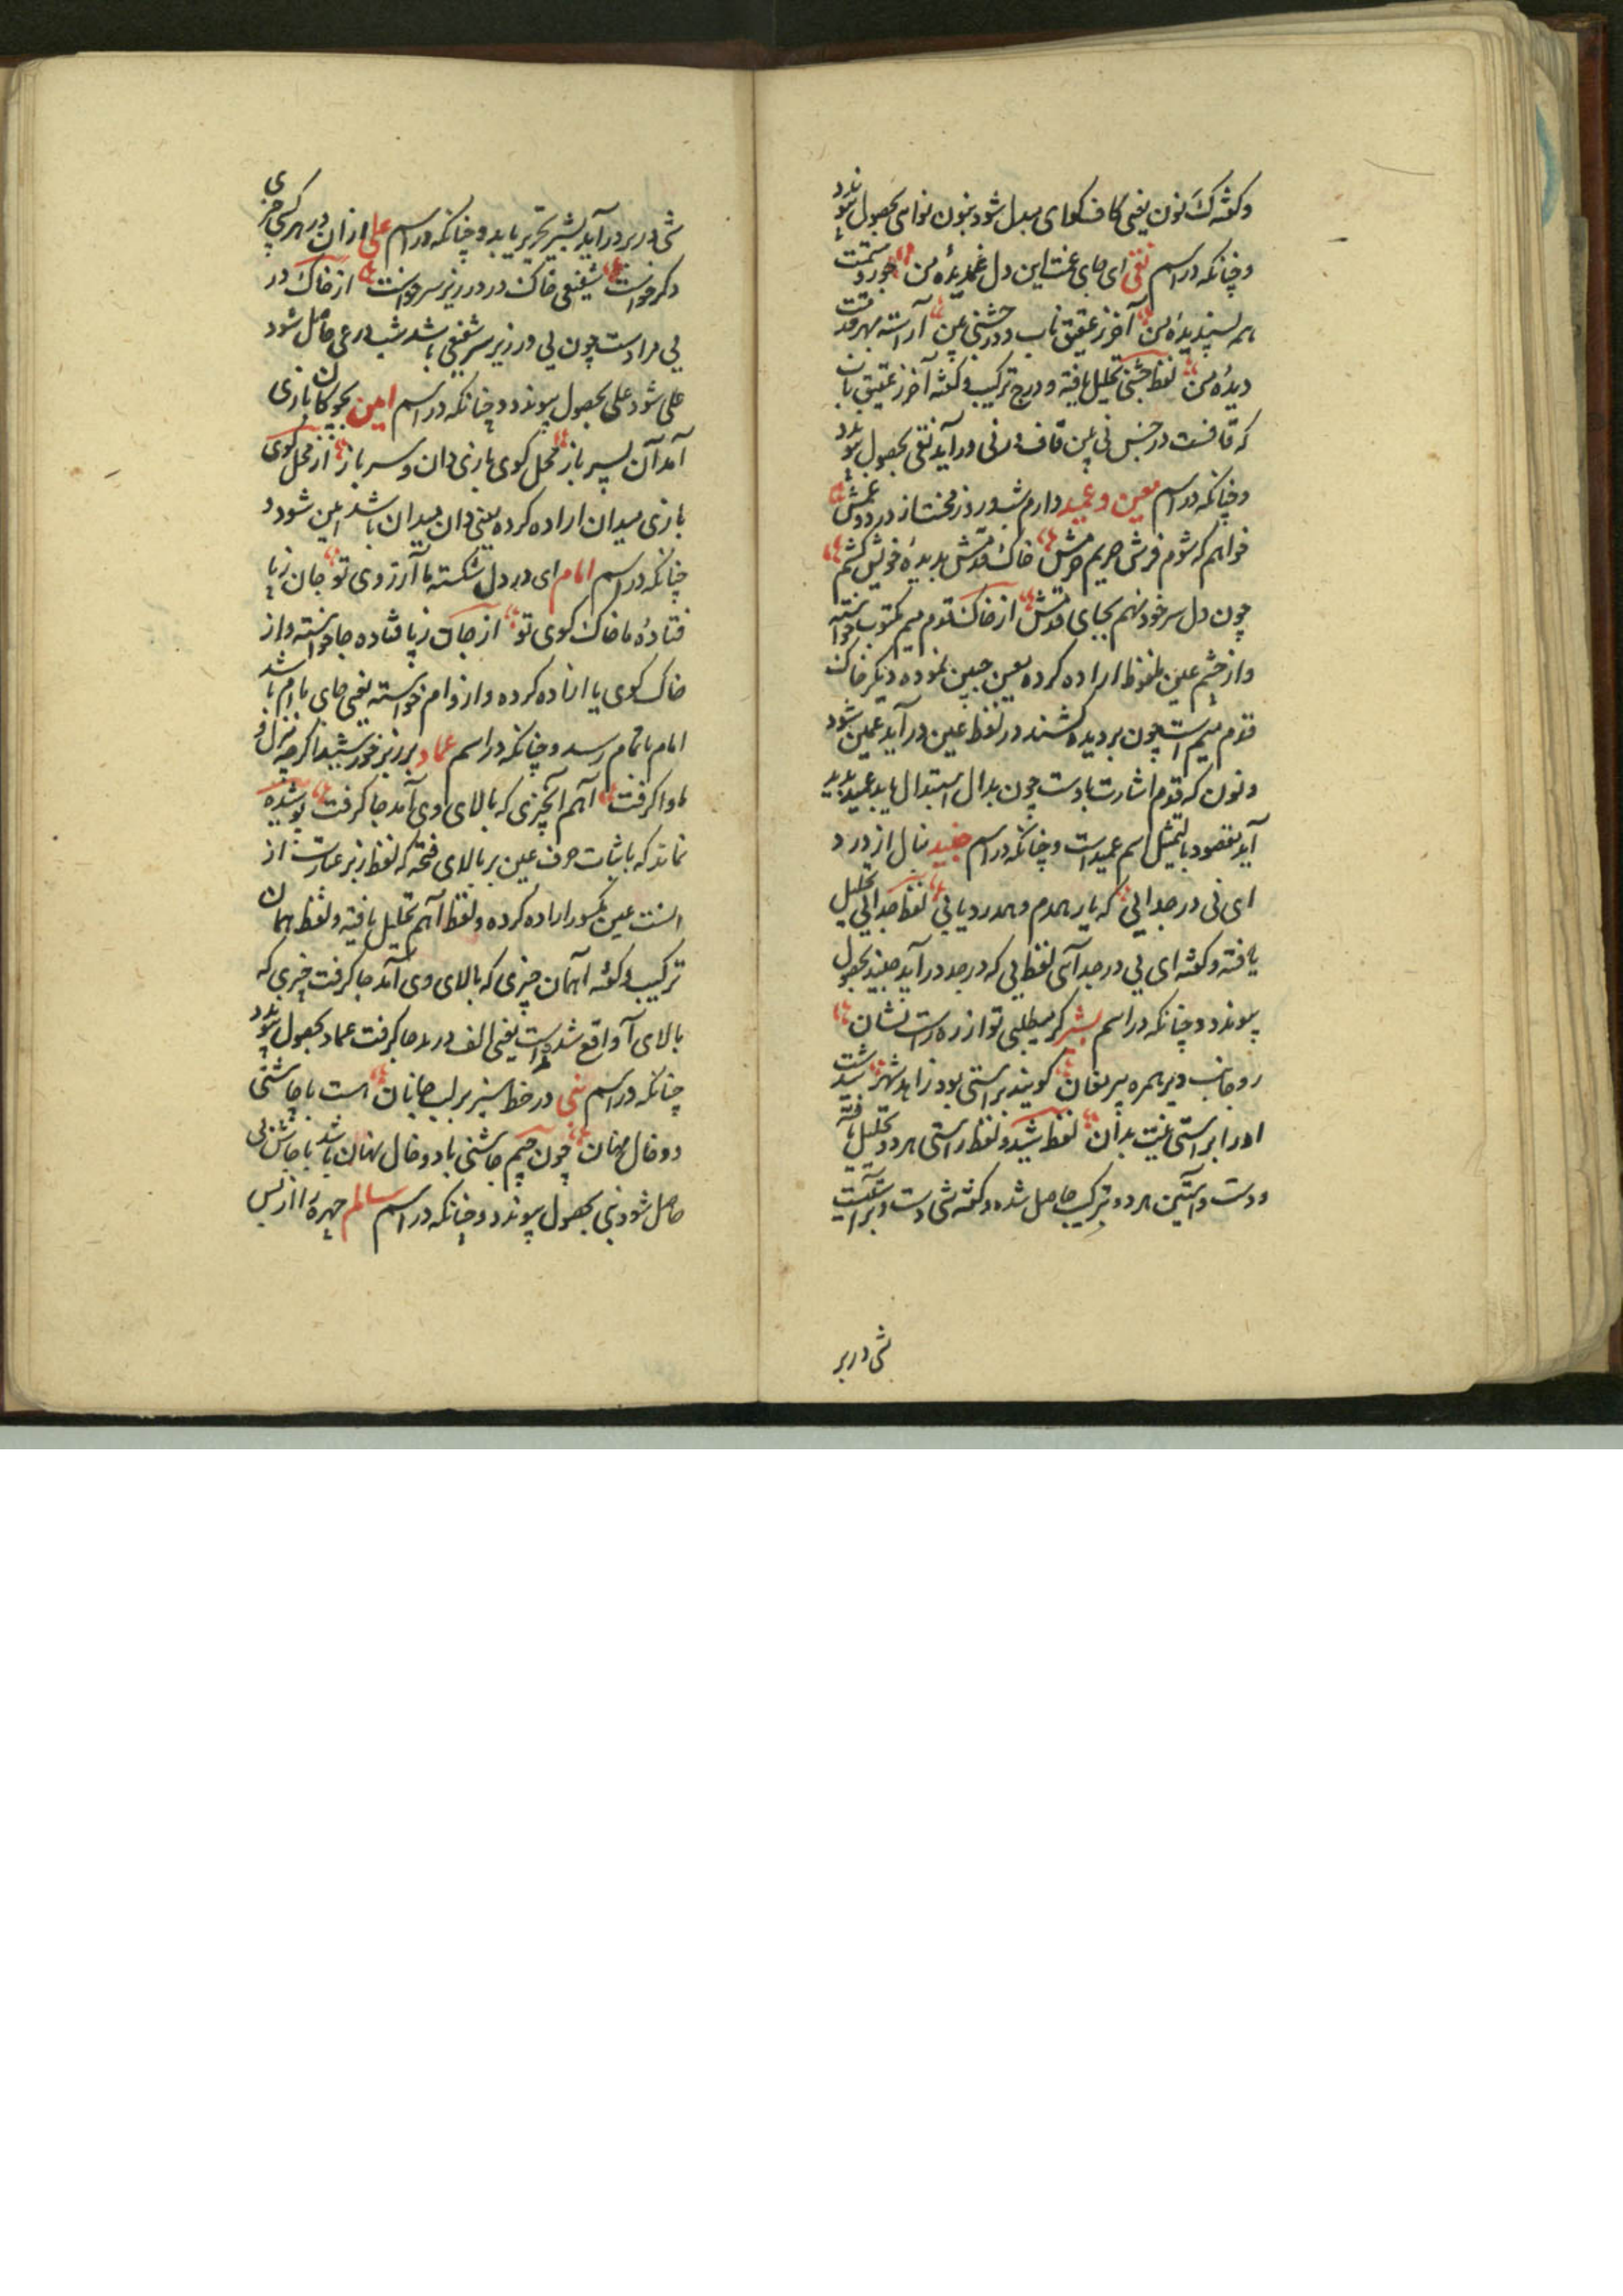 وکفته کَ نون یعنی کاف کوای مبدل شود بنون نوای بحصول پیوندد
وچنانکه در اسم نقی ای جای غمت این دل غمدیدهٔ من جور وستمت
هم پسندیدهٔ من آخر ز عقیق ناب ودر جشنی عین آراسته بهر قدمت
دیدهٔ من لفظ جشنی تحلیل یافته ودرج ترکیب وکفته آخر ز عقیق
که قافست در جنس نی عین قاف در نی در آید نقی بحصول پیوندد
وچنانکه در اسم معین وعمید دارم شب وروز محنت از درد وغمش
خواهم که شوم فرش حریم حرمش خاک قدمش بدیدهٔ خویش کشم
چون دل سر خود نهم بجای قدمش از خاک قدم میم مکتوب خواسته
واز چشم عین ملفوظ اراده کرده معین جبین نموده دیکر خاک
قدم میم است چون بر دیده کشند در لفظ عین در آید عمین شود
ونون که قدم اشارت باوست چون بدال استبدال یابد عمید پدید
آید مقصود بالتمثیل اسم عمید است وچنانکه در اسم جنید منال از درد
ای نی در جدایی که یار همدم وهمدرد یابی لفظ جدایی تحلیل
یافته وکفته ای نی در جد آی لفظ نی که در جد در آید جنید بحصول
پیوندد وچنانکه در اسم بشیر کر میطلبی تو از ره راست نشان
رو جانب دیر همره پیر مغان کویند براستی بود زاهد شهر شید است
اورا براستی نیست بدان لفظ شید ولفظ راستی هر دو تحلیل یافته
ودست وآستین هر دو بترکیب حاصل شده وکفته شی دست وبر آستیت
شی در بر
شی در بر در آید بشیر تحریر یابد وچنانکه در اسم علی از آن در هر کسی چیزی
دکر خواست شفیعی خاک در در زیر سر خواست از خاک در
یی مرادست چون یی در زیر سر شفیعی باشد شب در عی حاصل شود
علی شود علی بحصول پیوندد وچنانکه در اسم امین بچوکان بازی
آمد آن پسر باز محل کوی بازی دان وسر باز از محل کوی
بازی میدان اراده کرده یعنی دان میدان باشد امین شود و
چنانکه در اسم امام ای در دل شکسته ما آرزوی تو جان ز پا
فتادهٔ ما خاک کوی تو از جان ز پا فتاده جا خواسته واز
خاک کوی یا اراده کرده واز وام خواسته یعنی جای یا ام باشد
امام باتمام رسد وچنانکه در اسم عماد بر زبر خورشید اکر چه منزل و
ماوا کرفت آهم آنچیزی که بالای وی آمد جا کرفت پوشیده
نماند که باثبات حرف عین بر بالای فتحه که لفظ زبر عبارت از
انست عین مکسور اراده کرده ولفظ آهم تحلیل یافته ولفظ همان
ترکیب وکفته آ همان چیزی که بالای وی آمد جا کرفت چیزی که
بالای آ واقع شده مد است یعنی الف در مد جا کرفت عماد بحصول پیوندد
چنانکه در اسم نبی در خط سبز بر لب جانان است با چاشنی
دو خال نهان چون جیم چاشنی با دو خال نهان باشد با چاشنی
حاصل شود نبی بحصول پیوندد وچنانکه در اسم سالم چهره را از پس